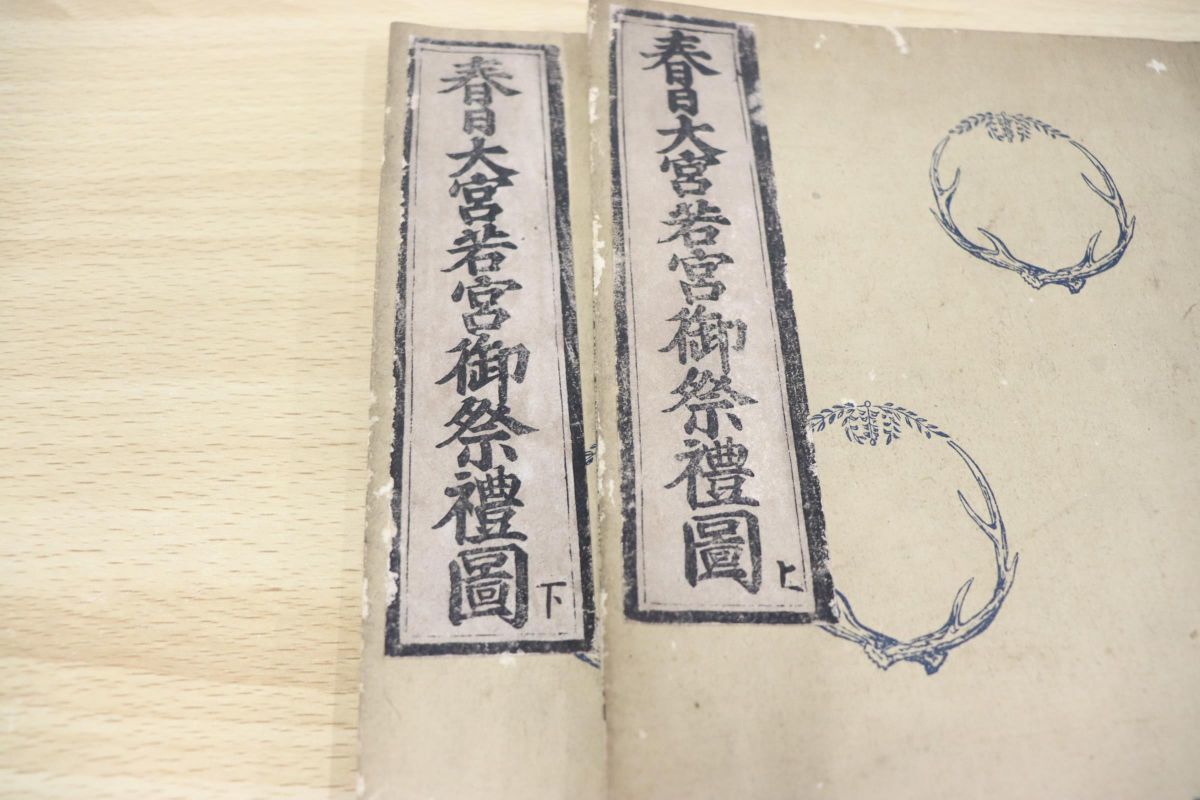 春日大宮若宮御祭禮圖 上
春日大宮若宮御祭禮圖 下